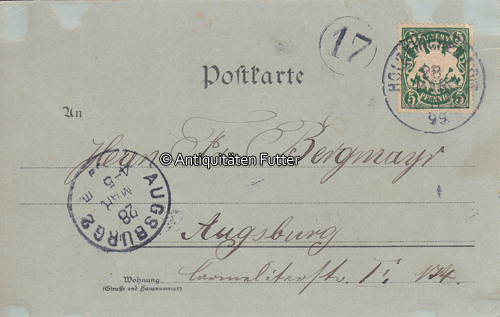 17
Postkarte
5 PFENNIG 5
28
99
An
Herrn Bergmayr
© Antiquitäten Futter
AUGSBURG 2
4-5
28
MAR
Augsburg
Carmeliterstr.
Wohnung
(Straße und Hausnummer)